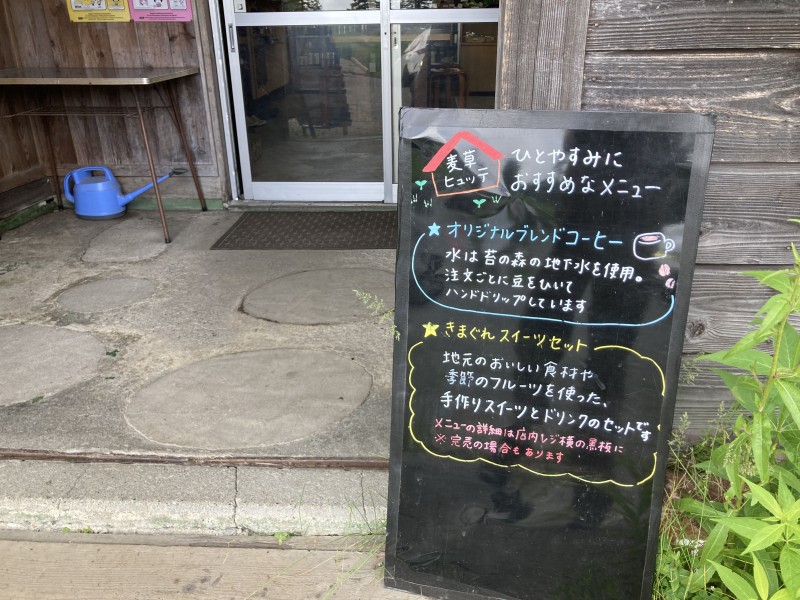 麦草
ヒュッテ
ひとやすみに
おすすめなメニュー
★ オリジナルブレンドコーヒー
水は苔の森の地下水を使用。
注文ごとに豆をひいて
ハンドドリップしています
★ きまぐれスイーツセット
地元のおいしい食材や
季節のフルーツを使った、
手作りスイーツとドリンクのセットです
メニューの詳細は店内レジ横の黒板に
※ 完売の場合もあります